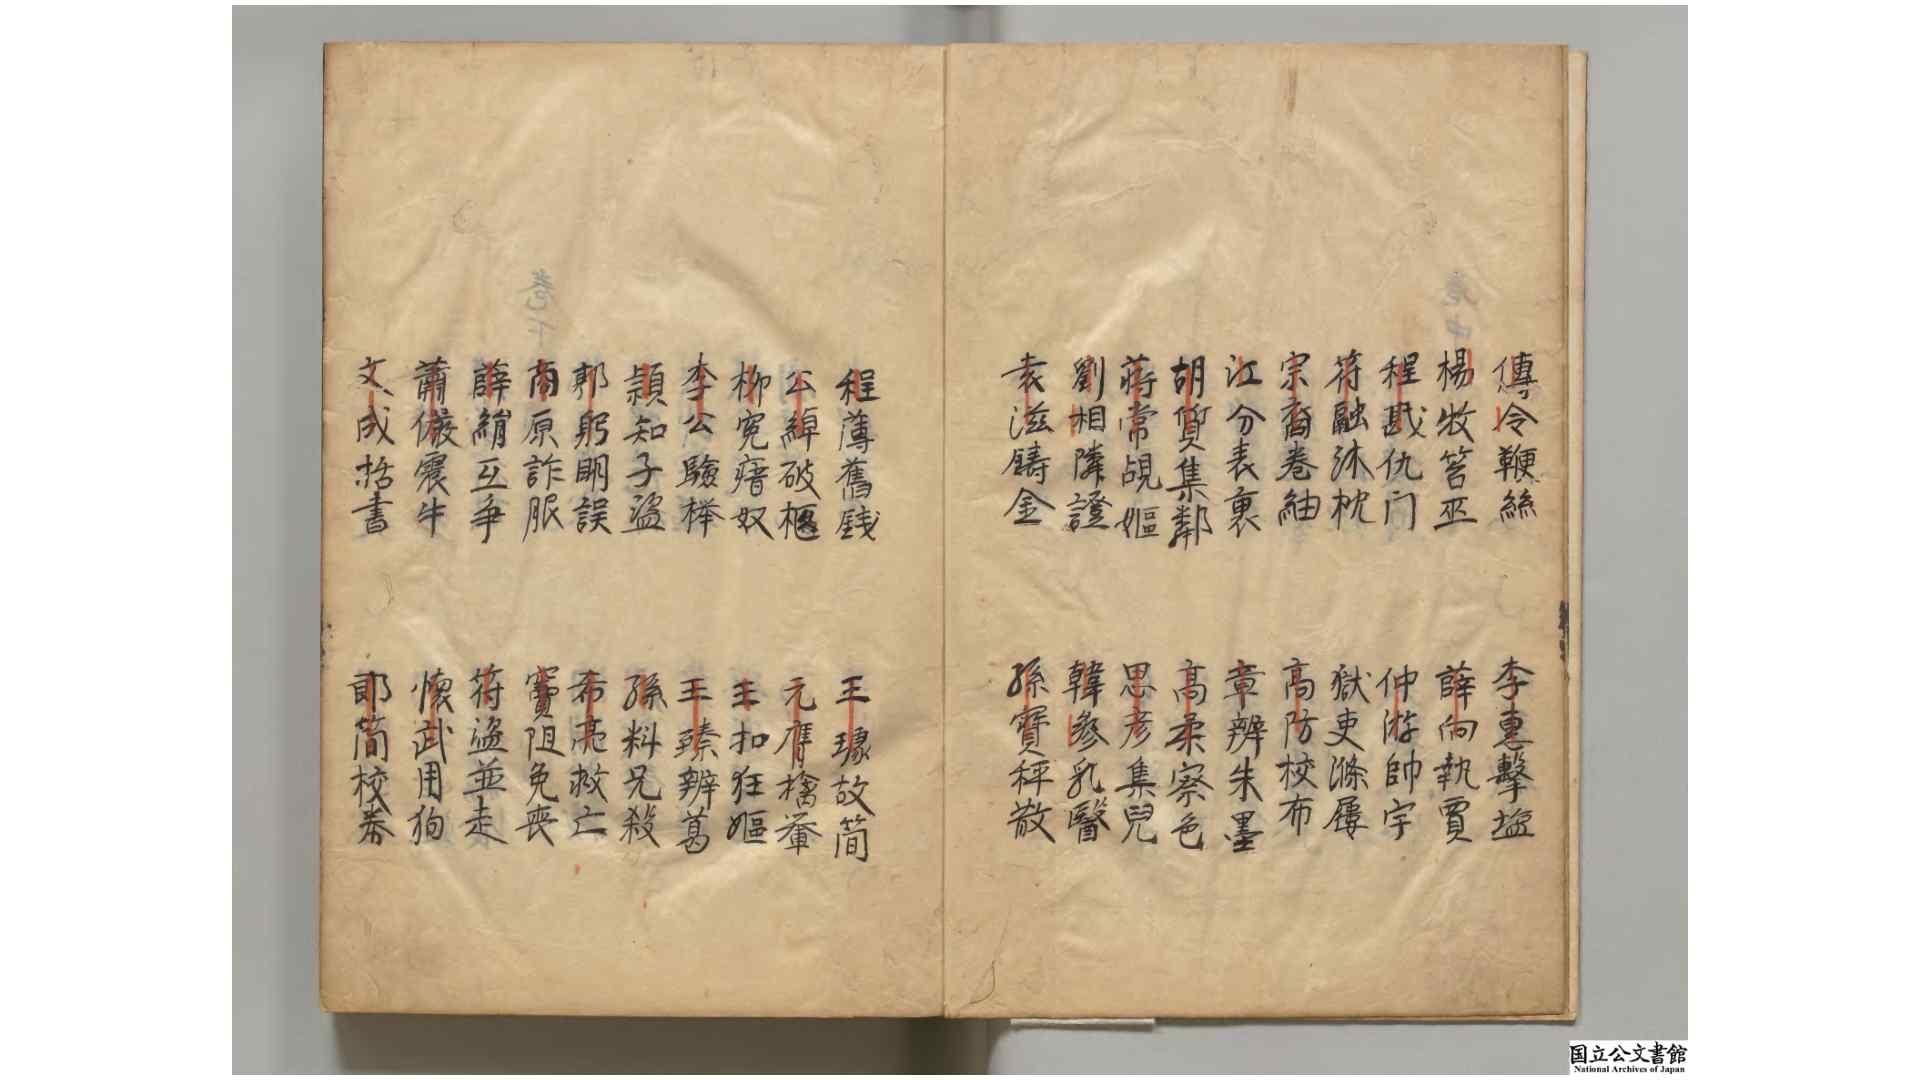 傳令鞭絲
李惠擊塩
楊牧笞巫
薛向執賈
程戡仇门
仲游帥宇
符融沐枕
獄吏滌屨
宗裔巻紬
高防校布
江分表裏
章辨朱墨
胡質集鄰
高柔察色
蒋常覘嫗
思彦集兒
劉相隣證
韓參乳醫
袁滋鑄金
孫寶秤散
程薄舊銭
王璩故简
公綽破柩
元膺擒轝
柳寃瘖奴
王扣狂嫗
李公驗櫸
王臻辨葛
頴知子盗
孫料兄殺
郭躬明誤
希亮救亡
商原詐服
竇阻免丧
薛絹互争
符盗並走
蕭儼震牛
懐武用狗
文成括書
郎简校券
国立公文書館
National Archives of Japan